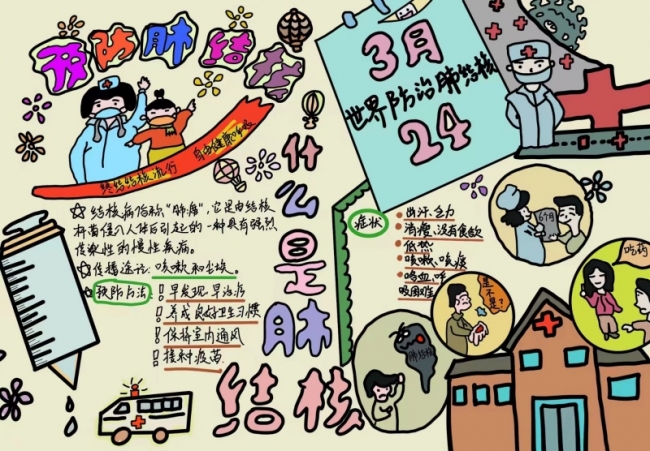 预防肺结核
终结结核流行 自由健康呼吸
3月
世界防治肺结核
24
什么是肺
结核
结核病俗称“肺痨”,它是由结核
杆菌侵入人体后引起的一种具有强烈
传染性的慢性疾病。
传播途径:咳嗽和尘埃。
预防方法
早发现,早治疗
养成良好卫生习惯
保持室内通风
接种疫苗
症状
出汗、乏力
消瘦、没有食欲
低热
咳嗽、咳痰
咯血、呼
吸困难
6个月
是不是?
吃药
肺结核